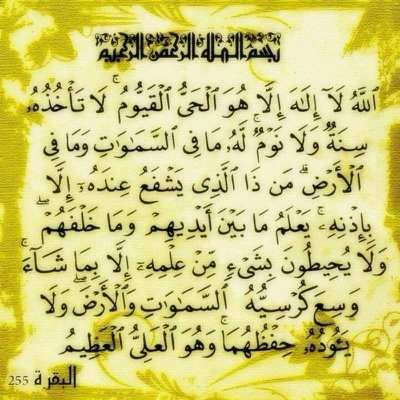 بسم الله الرحمن الرحيم
ٱللَّهُ لَآ إِلَٰهَ إِلَّا هُوَ ٱلْحَىُّ ٱلْقَيُّومُ ۚ لَا تَأْخُذُهُۥ
سِنَةٌ وَلَا نَوْمٌ ۚ لَّهُۥ مَا فِى ٱلسَّمَٰوَٰتِ وَمَا فِى
ٱلْأَرْضِ ۗ مَن ذَا ٱلَّذِى يَشْفَعُ عِندَهُۥٓ إِلَّا
بِإِذْنِهِۦ ۚ يَعْلَمُ مَا بَيْنَ أَيْدِيهِمْ وَمَا خَلْفَهُمْ ۖ
وَلَا يُحِيطُونَ بِشَىْءٍ مِّنْ عِلْمِهِۦٓ إِلَّا بِمَا شَآءَ ۚ
وَسِعَ كُرْسِيُّهُ ٱلسَّمَٰوَٰتِ وَٱلْأَرْضَ ۖ وَلَا
يَـُٔودُهُۥ حِفْظُهُمَا ۚ وَهُوَ ٱلْعَلِىُّ ٱلْعَظِيمُ
البقرة 255